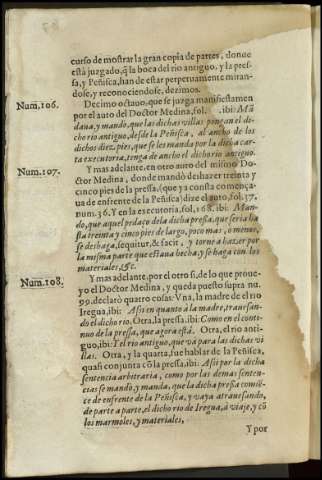 curso de mostrar la gran copia de partes, donde
està juzgado, q̃ la boca del rio antiguo, y la pres-
sa, y Peñisca, han de estar perpetuamente miran-
dose, y reconociendose, dezimos.
Num. 106.
Decimo octauo, que se juzga manifiestamen
por el auto del Doctor Medina, fol. ibi: Mã
daua, y mando, que las dichas villas pongan el di-
cho rio antiguo, desde la Peñisca, al ancho de los
dichos diez, pies, que se les manda por la dicha car-
ta executoria, tenga de ancho el dicho rio antiguo.
Num. 107.
Y mas adelante, en otro auto del mismo Do-
ctor Medina, donde mandò deshazer treinta y
cinco pies de la pressa, (que ya consta comença-
ua de enfrente de la Peñisca) dize el auto, fol. 37.
num. 36. Y en la executoria, fol. 168. ibi: Man-
do, que aquel pedaço de la dicha pressa, que seria ha
sta treinta y cinco pies de largo, poco mas, o menos,
se deshaga, sequitur, & facit, y torne a hazer por
la misma parte que estaua hecha, y se haga con los
materiales, &c.
Num. 108.
Y mas adelante, por el otro si, de lo que proue-
yo el Doctor Medina, y queda puesto supra nu.
99. declarò quatro cosas: Vna, la madre de el rio
Iregua, ibi: Assi en quanto à la madre, trauesan-
do el dicho rio. Otra, la pressa, ibi: Como en el conti-
nuo de la pressa, que agora està. Otra, el rio anti-
guo, ibi: Y el rio antiguo, que va para las dichas vi-
llas. Otra, y la quarta, fue hablar de la Peñisca,
quasi conjunta cõ la pressa, ibi: Assi por la dicha
sentencia arbitraria, como por las demas senten-
cias se mandò, y manda, que la dicha pressa comiẽ-
ce de enfrente de la Peñisca, y vaya atrauesando,
de parte a parte, el dicho rio de Iregua, à viaje, y cõ
los marmoles, y materiales,
Y por